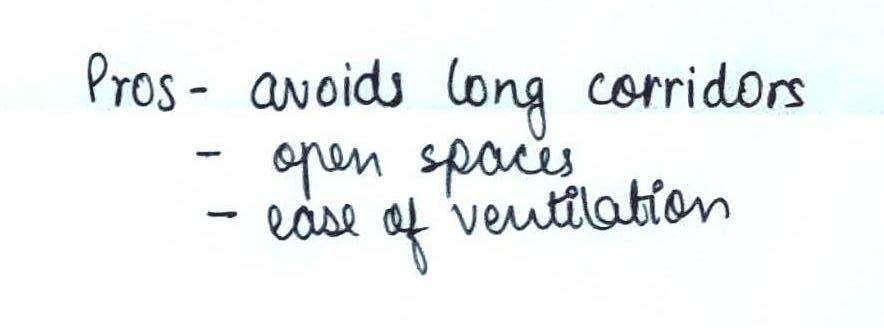 Pros - avoids long corridors
- open spaces
- ease of ventilation